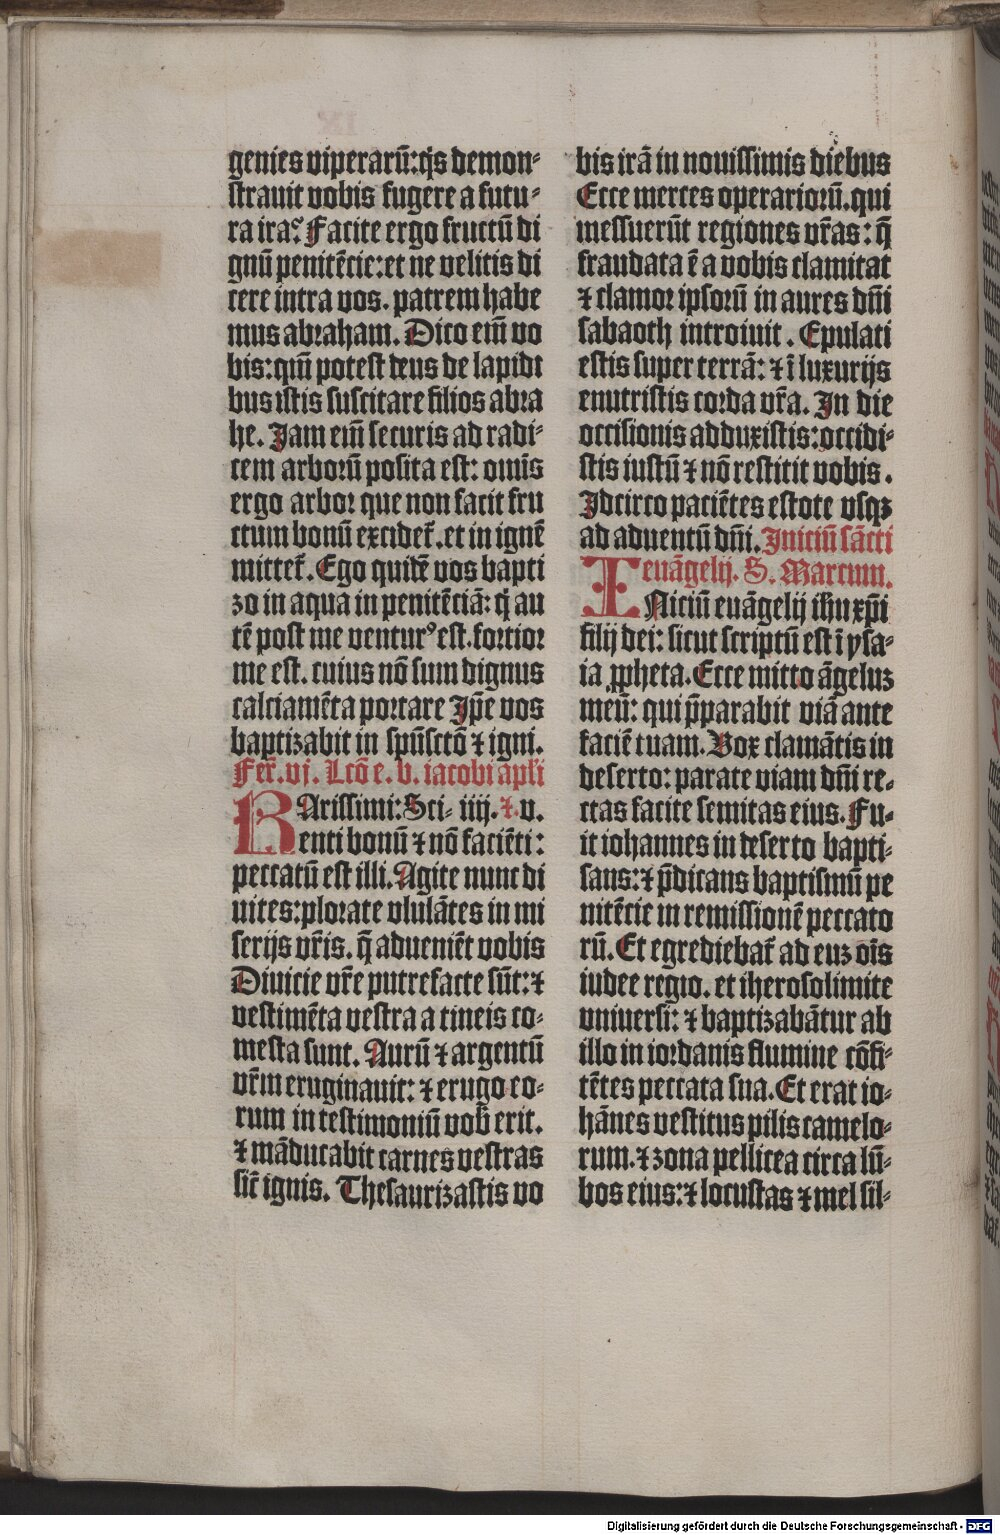 genies viperarū: q̇s demon-
strauit vobis fugere a futu-
ra ira? Facite ergo fructū di
gnū penitēcie: et ne velitis di
cere intra vos. patrem habe
mus abraham. Dico em̄ vo
bis: qm̄ potest deus de lapidi
bus istis suscitare filios abra
he. Jam em̄ securis ad radi-
cem arborū posita est: omīs
ergo arbor que non facit fru
ctum bonū excidet̄. et in ignē
mittet̄. Ego quidē vos bapti
zo in aqua in penitēciā: q̇ au
tē post me ventur⁹ est. fortior
me est. cuius nō sum dignus
calciamēta portare Ip̄e vos
baptizabit in spūsctō ⁊ igni.
Fer̄. vj. Lcō e. b. iacobi apl̄i
KArissimi: Sci- iiij. ⁊. v.
enti bonū ⁊ nō faciēti:
peccatū est illi. Agite nunc di
uites: plorate vlulātes in mi
serijs vr̄is. q̄ adueniēt vobis
Diuicie vr̄e putrefacte sūt: ⁊
vestimēta vestra a tineis co-
mesta sunt. Aurū ⁊ argentū
vr̄m eruginauit: ⁊ erugo eo-
rum in testimoniū vob̄ erit.
⁊ māducabit carnes vestras
sic̄ ignis. Thesaurizastis vo
bis irā in nouissimis diebus
Ecce merces operariorū. qui
messuerūt regiones vr̄as: q̄
fraudata ē a vobis clamitat
⁊ clamor ipsorū in aures dn̄i
sabaoth introiuit. Epulati
estis super terrā: ⁊ ī luxurijs
enutristis corda vr̄a. In die
occisionis adduxistis: occidi-
stis iustū ⁊ nō restitit vobis.
Idcirco paciētes estote vsqꝫ
ad aduentū dn̄i. Iniciū sācti
euāgelij. S. Marcum.
INiciū euāgelij ih̄u xp̄i
filij dei: sicut scriptū est ī ysa-
ia ꝓpheta. Ecce mitto āgeluꝫ
meū: qui p̄parabit viā ante
faciē tuam. Vox clamātis in
deserto: parate viam dn̄i re-
ctas facite semitas eius. Fu-
it iohannes in deserto bapti-
sans: ⁊ p̄dicans baptismū pe
nitēcie in remissionē peccato
rū. Et egrediebat̄ ad euꝫ oīs
iudee regio. et iherosolimite
vniuersi: ⁊ baptizabātur ab
illo in iordanis flumine cōfi-
tētes peccata sua. Et erat io-
hānes vestitus pilis camelo-
rum. ⁊ zona pellicea circa lū-
bos eius: ⁊ locustas ⁊ mel sil-
Digitalisierung gefördert durch die Deutsche Forschungsgemeinschaft - DFG